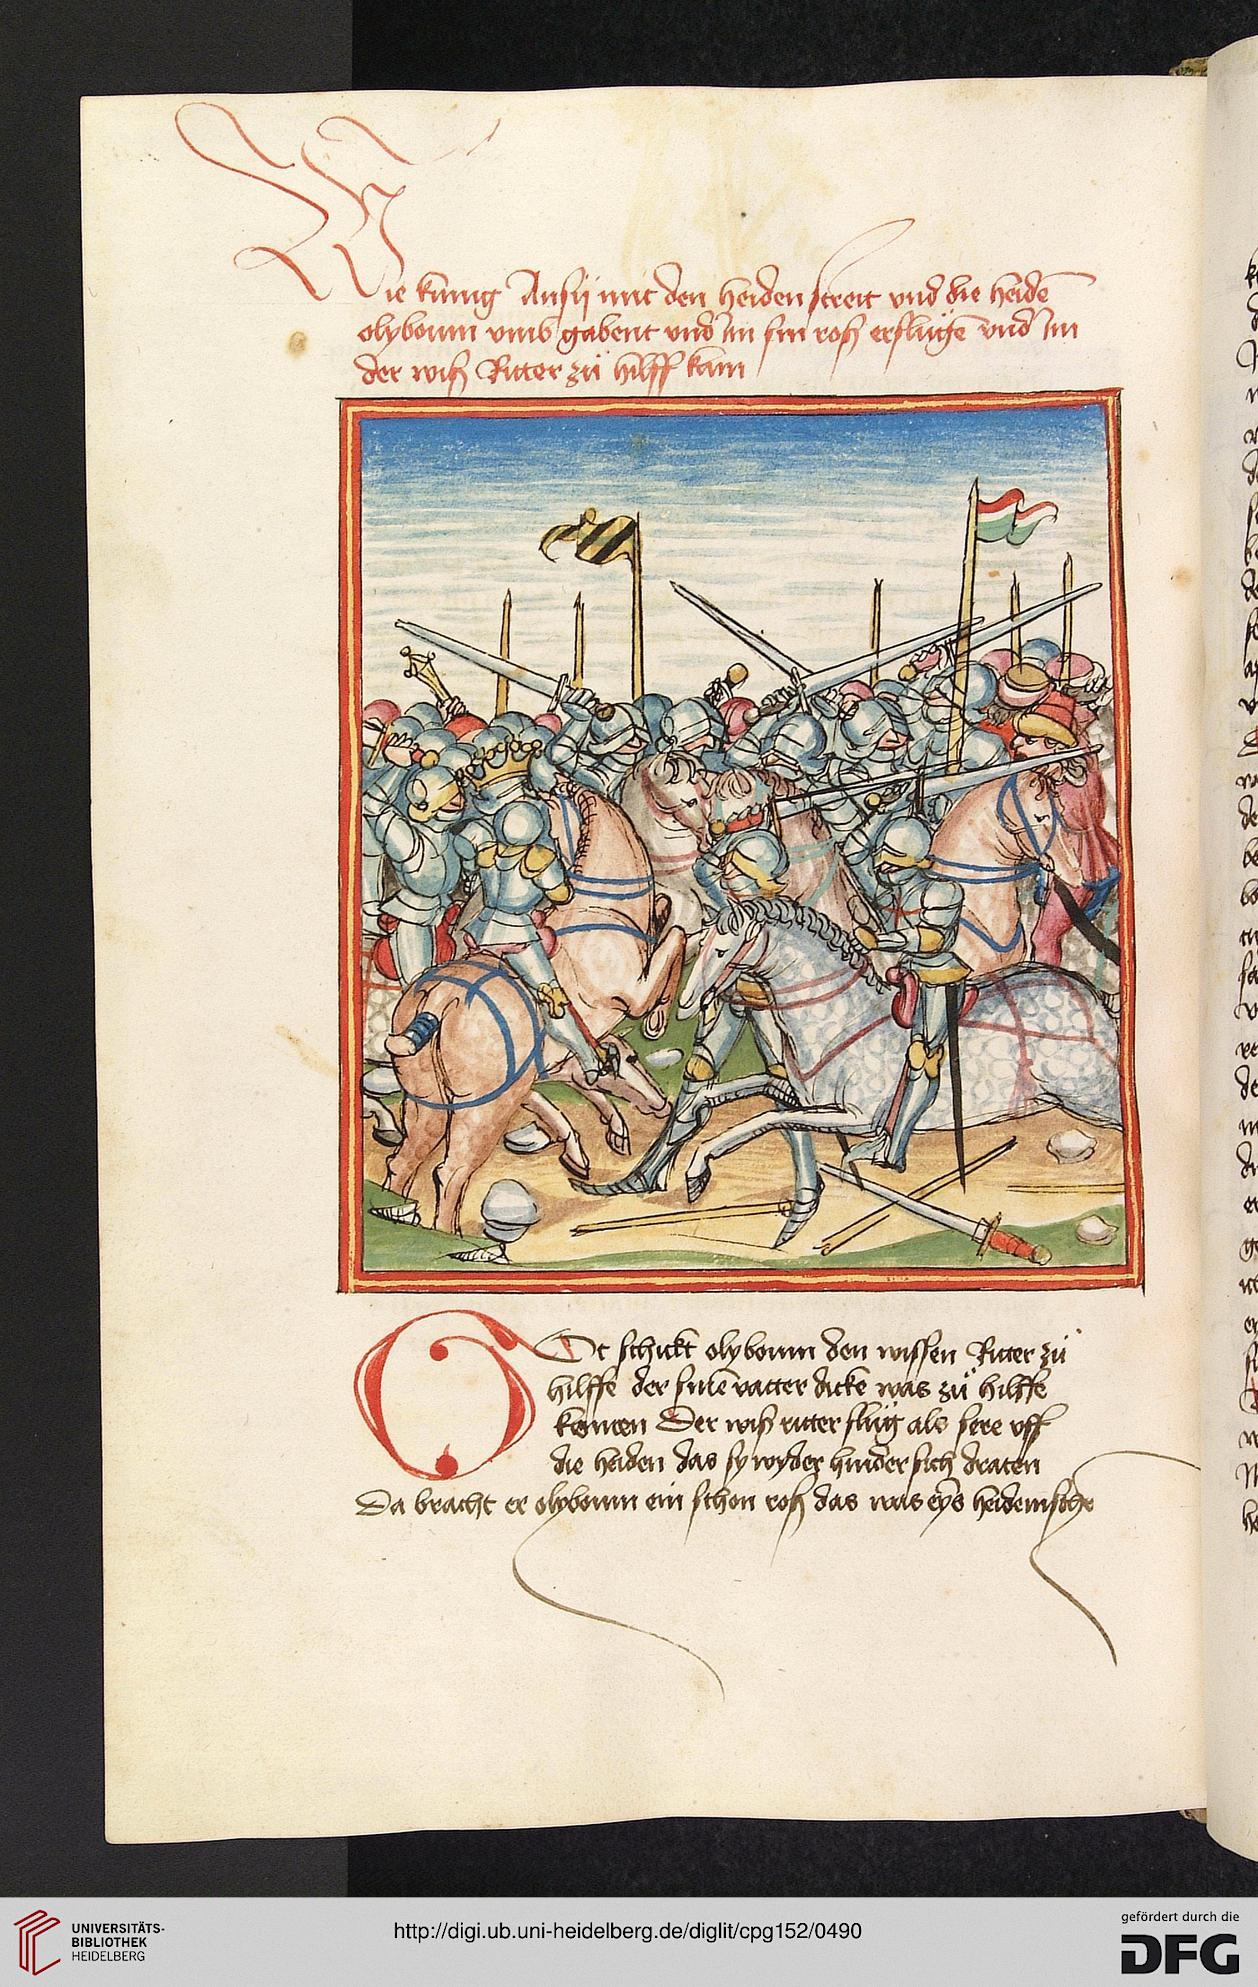 Wie kunig Ansij mit den heiden streit vnd die heidē
olybaum vmb gabent vnd im sin roß erslugē vnd im
der wiß Ritter zů hilff kam
Ot schickt olyboum den wissen Ritter zů
hilffe der sinē vatter dicke was zů hilffe
komen Der wiß ritter slůg als sere vff
die heiden das sy wyder hinder sich traten
Da bracht er olyboum ein schon roß das was eỹs heidenische
UNIVERSITÄTS-
BIBLIOTHEK
HEIDELBERG
http://digi.ub.uni-heidelberg.de/diglit/cpg152/0490
gefördert durch die
DFG